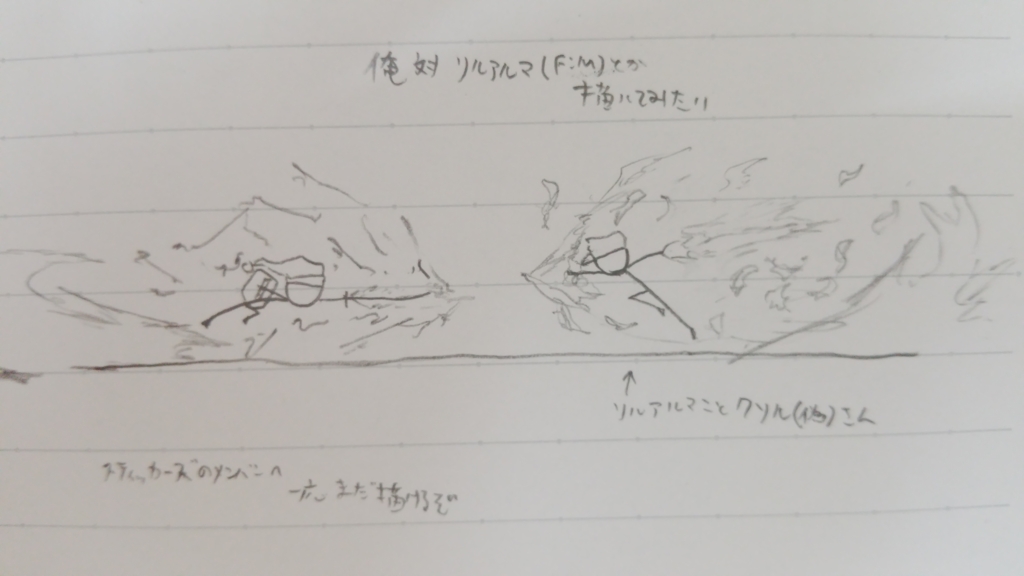 俺対リルアルマ(F:M)とか
描いてみたい
↑
リルアルマことクソル(仮)さん
スティッカーズのメンバーへ
一応まだ描けるぞ